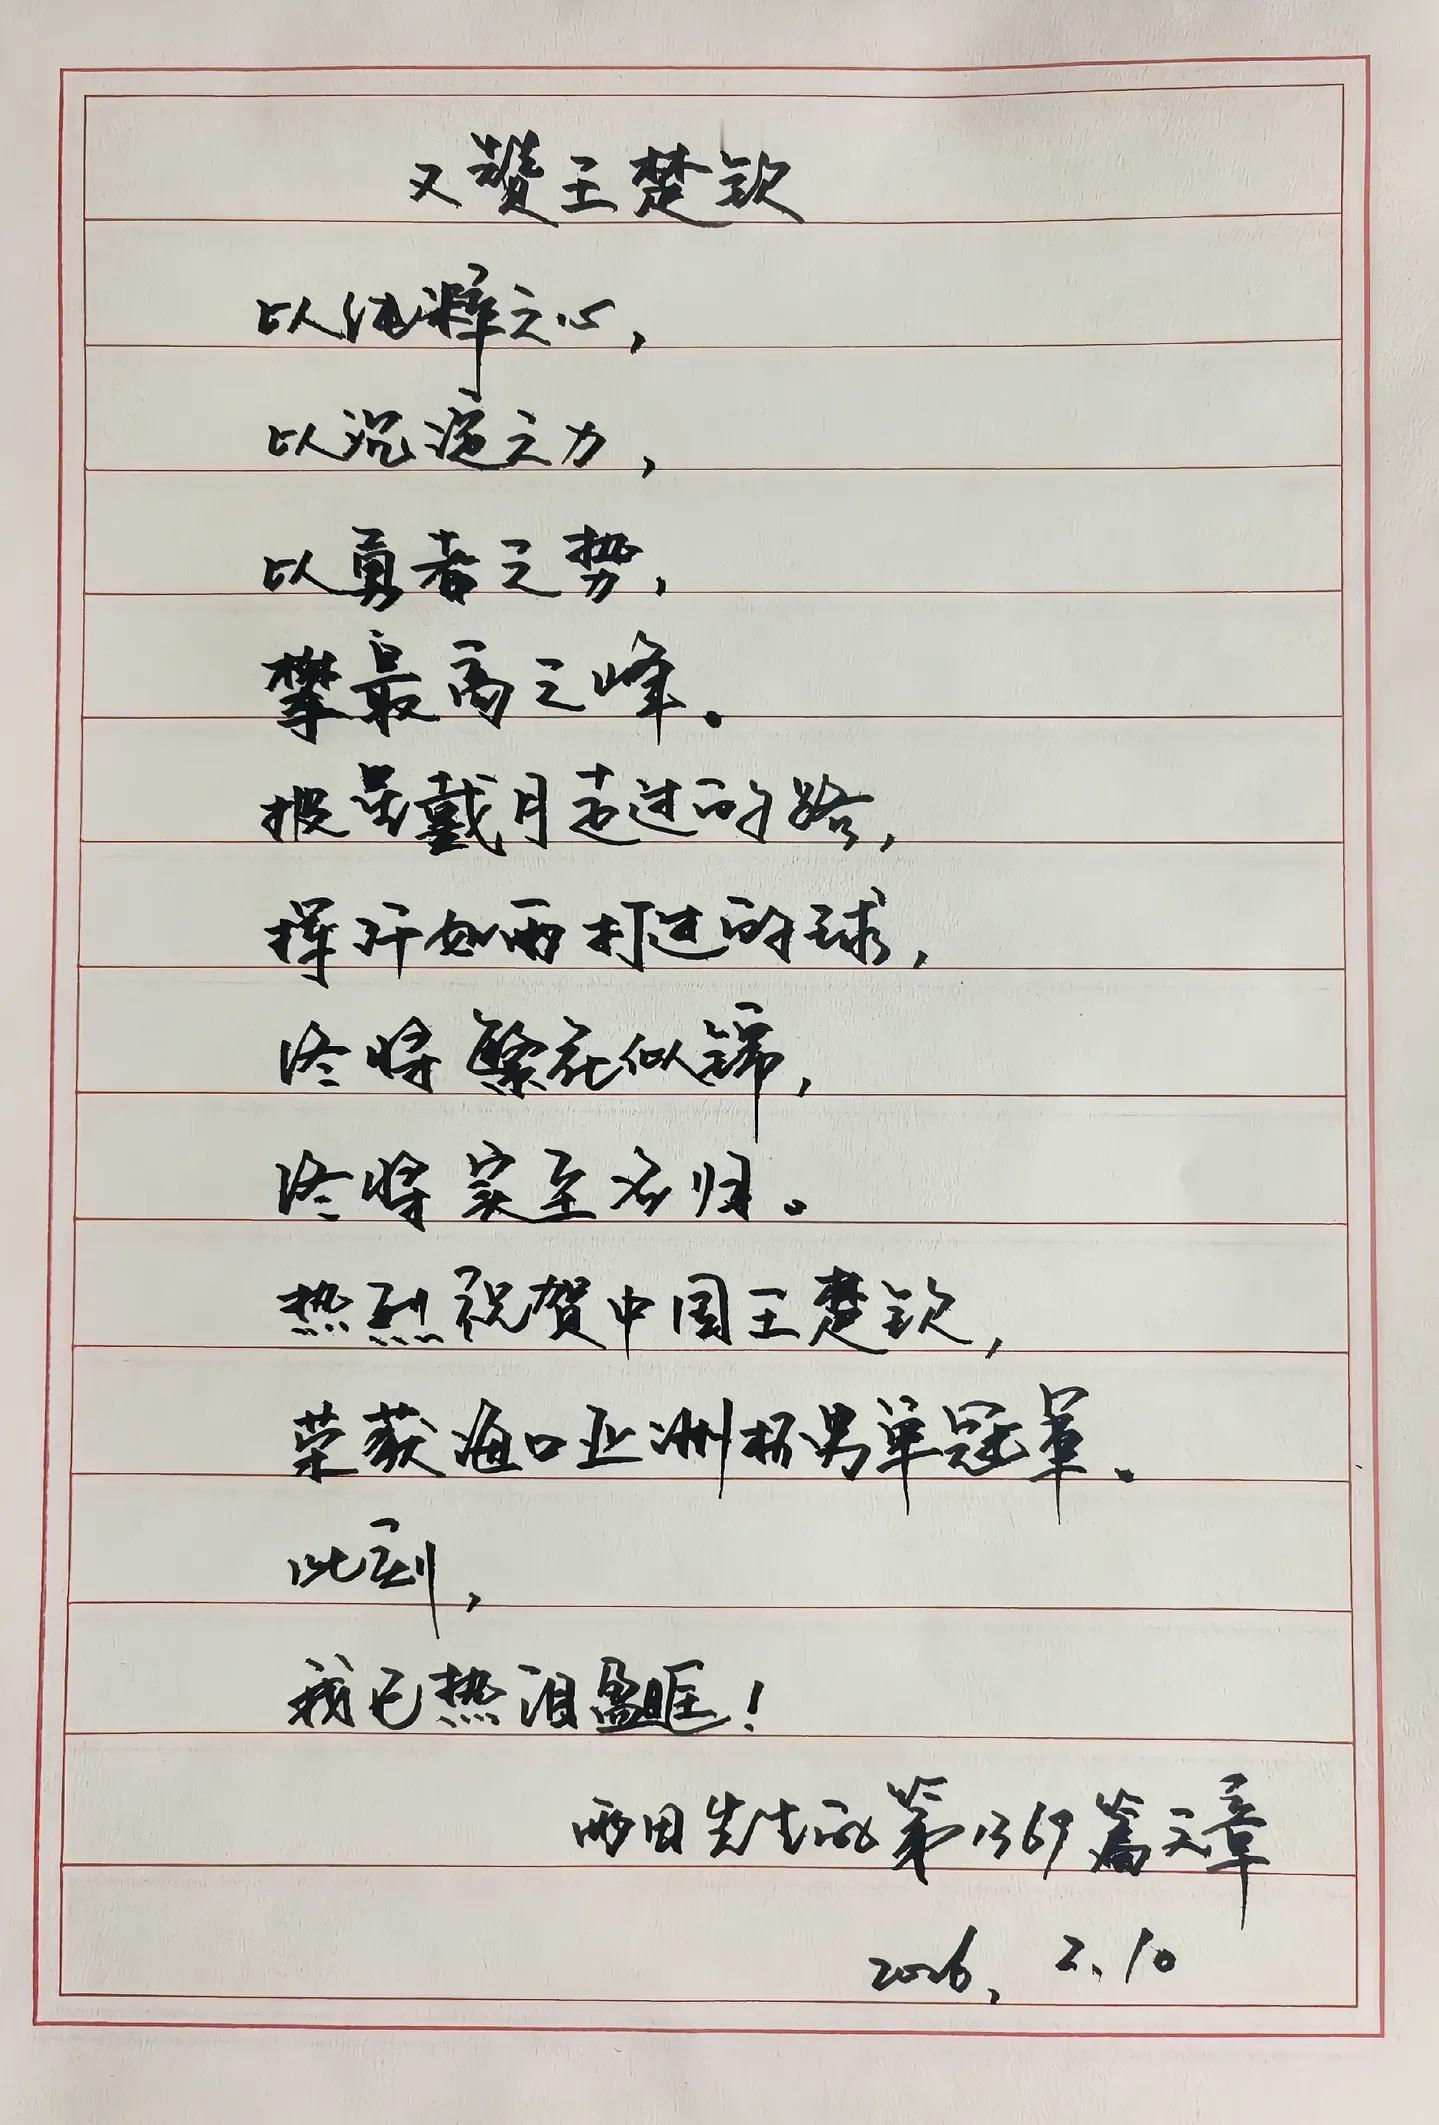 又赞王楚钦
以纯粹之心，
以沉淀之力，
以勇者之势，
攀最高之峰。
披星戴月走过的路，
挥汗如雨打过的球，
终将繁花似锦，
终将实至名归。
热烈祝贺中国王楚钦，
荣获海口亚洲杯男单冠军。
此刻，
我已热泪盈眶！
雨田先生的第1369篇文章
2026，2、10